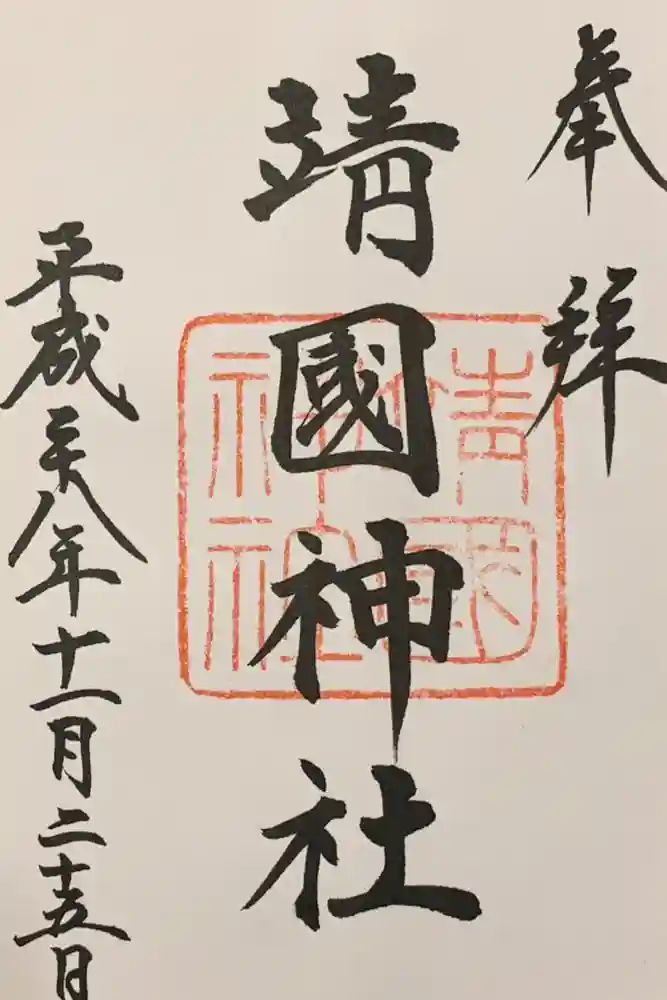 奉拝
靖國神社
平成二十八年十一月二十五日
靖國
神社